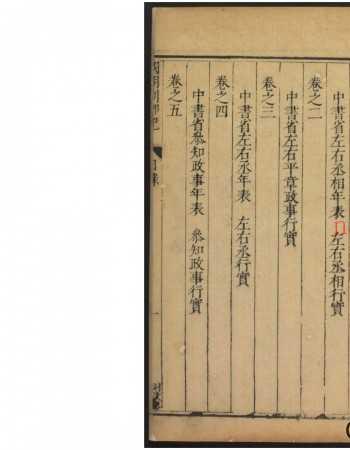 卷之二
中書省左右丞相年表 左右丞相行實
卷之三
中書省左右平章政事行實
卷之四
中書省左右丞年表 左右丞行實
卷之五
中書省叅知政事年表 叅知政事行實
目錄